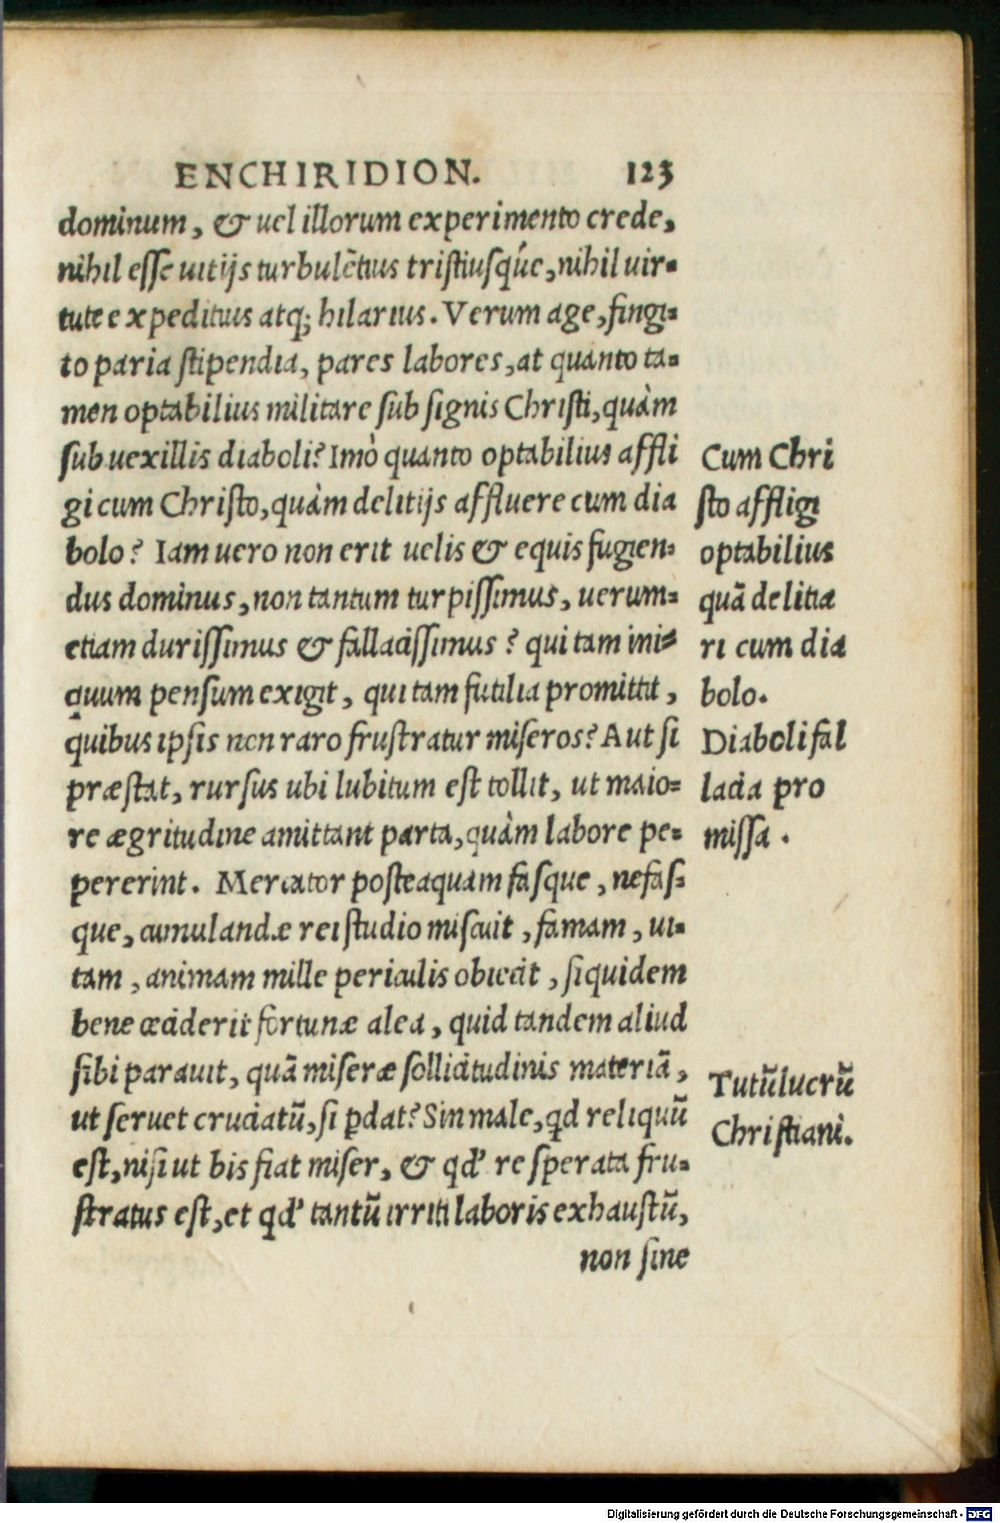 ENCHIRIDION. 123
dominum, & uel illorum experimento crede,
nihil esse uitijs turbulẽtius tristiusq́ue, nihil uir-
tute expeditius atq; hilarius. Verum age, fingi-
to paria stipendia, pares labores, at quanto ta-
men optabilius militare sub signis Christi, quàm
sub uexillis diaboli? Imò quanto optabilius affli
gi cum Christo, quàm delitijs affluere cum dia
bolo? Iam uero non erit uelis & equis fugien-
dus dominus, non tantum turpissimus, uerum-
etiam durissimus & fallacissimus? qui tam ini-
quum pensum exigit, qui tam futilia promittit,
quibus ipsis non raro frustratur miseros? Aut si
præstat, rursus ubi lubitum est tollit, ut maio-
re ægritudine amittant parta, quàm labore pe-
pererint. Mercator posteaquam fasque, nefas-
que, cumulandæ rei studio miscuit, famam, ui-
tam, animam mille periculis obiecit, siquidem
bene ceciderit fortunæ alea, quid tandem aliud
sibi parauit, quã miseræ sollicitudinis materiã,
ut seruet cruciatũ, si ꝑdat? Sin male, qd reliquũ
est, nisi ut bis fiat miser, & qd' re sperata fru-
stratus est, et qd' tantũ irriti laboris exhaustũ,
non sine
Cum Chri
sto affligi
optabilius
quã delitia
ri cum dia
bolo.
Diaboli fal
lacia pro
missa.
Tutũ lucrũ
Christiani.
Digitalisierung gefördert durch die Deutsche Forschungsgemeinschaft - DFG